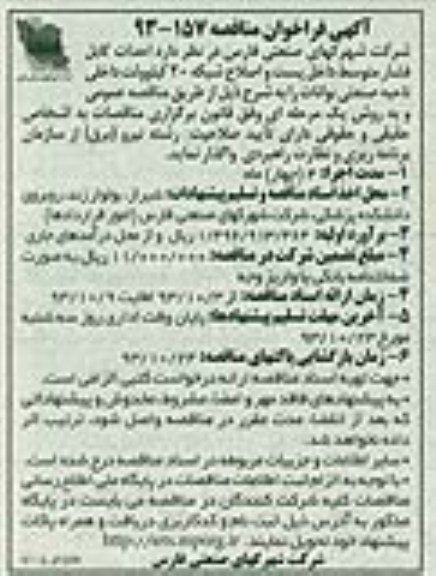 آگهی فراخوان مناقصه ۱۵۷-۹۳
شرکت شهرکهای صنعتی فارس در نظر دارد احداث کابل
فشار متوسط داخل پست و اصلاح شبکه ۲۰ کیلوولت داخلی
ناحیه صنعتی بوانات را به شرح ذیل از طریق مناقصه عمومی
و به روش یک مرحله ای وفق قانون برگزاری مناقصات به اشخاص
حقیقی و حقوقی دارای تایید صلاحیت رشته نیرو (برق) از سازمان
برنامه ریزی و نظارت راهبردی واگذار نماید.
۱- مدت اجرا: ۴ (چهار) ماه
۲- محل اخذ اسناد مناقصه و تسلیم پیشنهادات: شیراز، بولوار زند، روبروی
دانشکده پزشکی، شرکت شهرکهای صنعتی فارس (امور قراردادها)
۳- برآورد اولیه: ریال و از محل درآمدهای جاری
۴- مبلغ تضمین شرکت در مناقصه: ریال به صورت
ضمانتنامه بانکی یا واریز وجه
۴- زمان ارائه اسناد مناقصه: از ۹۳/۱۰/۳ لغایت ۹۳/۱۰/۹
۵- آخرین مهلت تسلیم پیشنهادها: پایان وقت اداری روز سه شنبه
مورخ ۹۳/۱۰/۲۳
۶- زمان بازگشایی پاکتهای مناقصه: ۹۳/۱۰/۲۴
* جهت تهیه اسناد مناقصه ارائه درخواست کتبی الزامی است.
* به پیشنهادهای فاقد مهر و امضا، مشروط، مخدوش و پیشنهاداتی
که بعد از انقضا مدت مقرر در مناقصه واصل شود، ترتیب اثر
داده نخواهد شد.
* سایر اطلاعات و جزییات مربوطه در اسناد مناقصه درج شده است.
* با توجه به الزام ثبت اطلاعات مناقصات در پایگاه ملی اطلاع رسانی
مناقصات کلیه شرکت کنندگان در مناقصه می بایست در پایگاه
مذکور به آدرس ذیل ثبت نام و کد کاربری دریافت و همراه پاکات
پیشنهاد خود تحویل نمایند.
شرکت شهرکهای صنعتی فارس